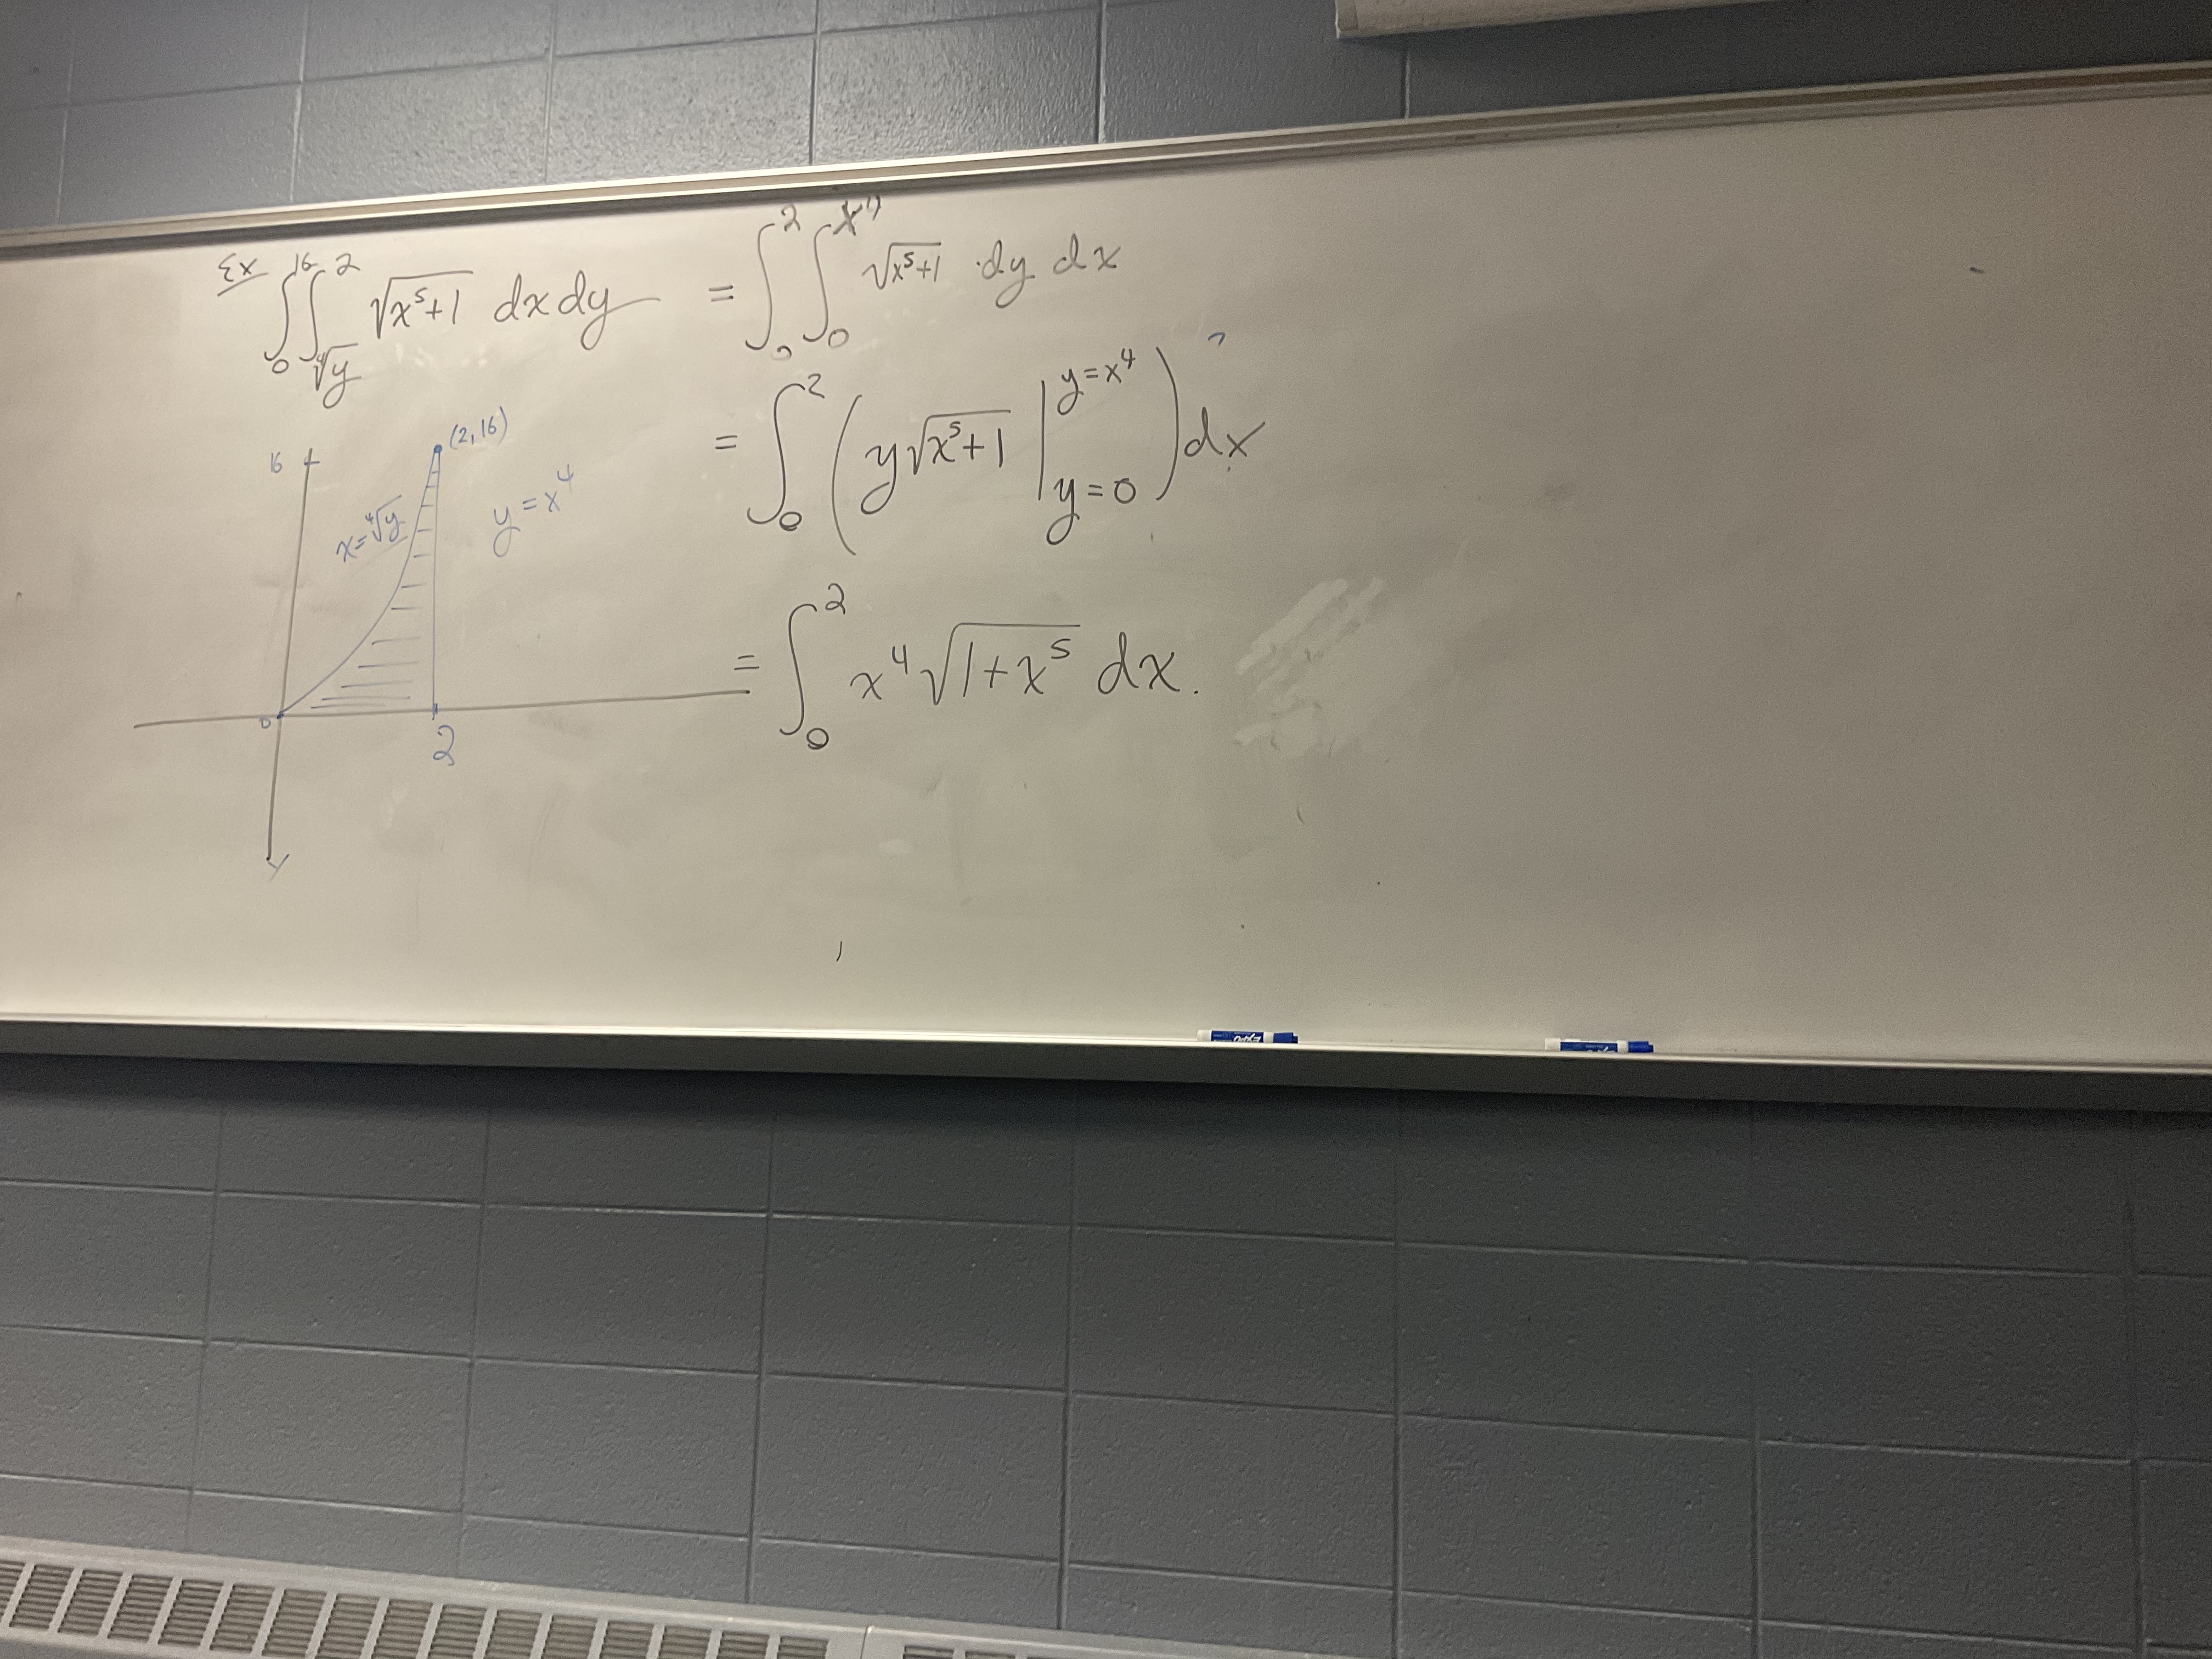 Ex ∫₀¹⁶ ∫_{∜y}² √(x⁵+1) dx dy = ∫₀² ∫₀^{x⁴} √(x⁵+1) · dy dx
= ∫₀² ( y√(x⁵+1) |_{y=0}^{y=x⁴} ) dx
= ∫₀² x⁴ √(1+x⁵) dx.
16
(2,16)
x=∜y
y=x⁴
0
2
EXPO